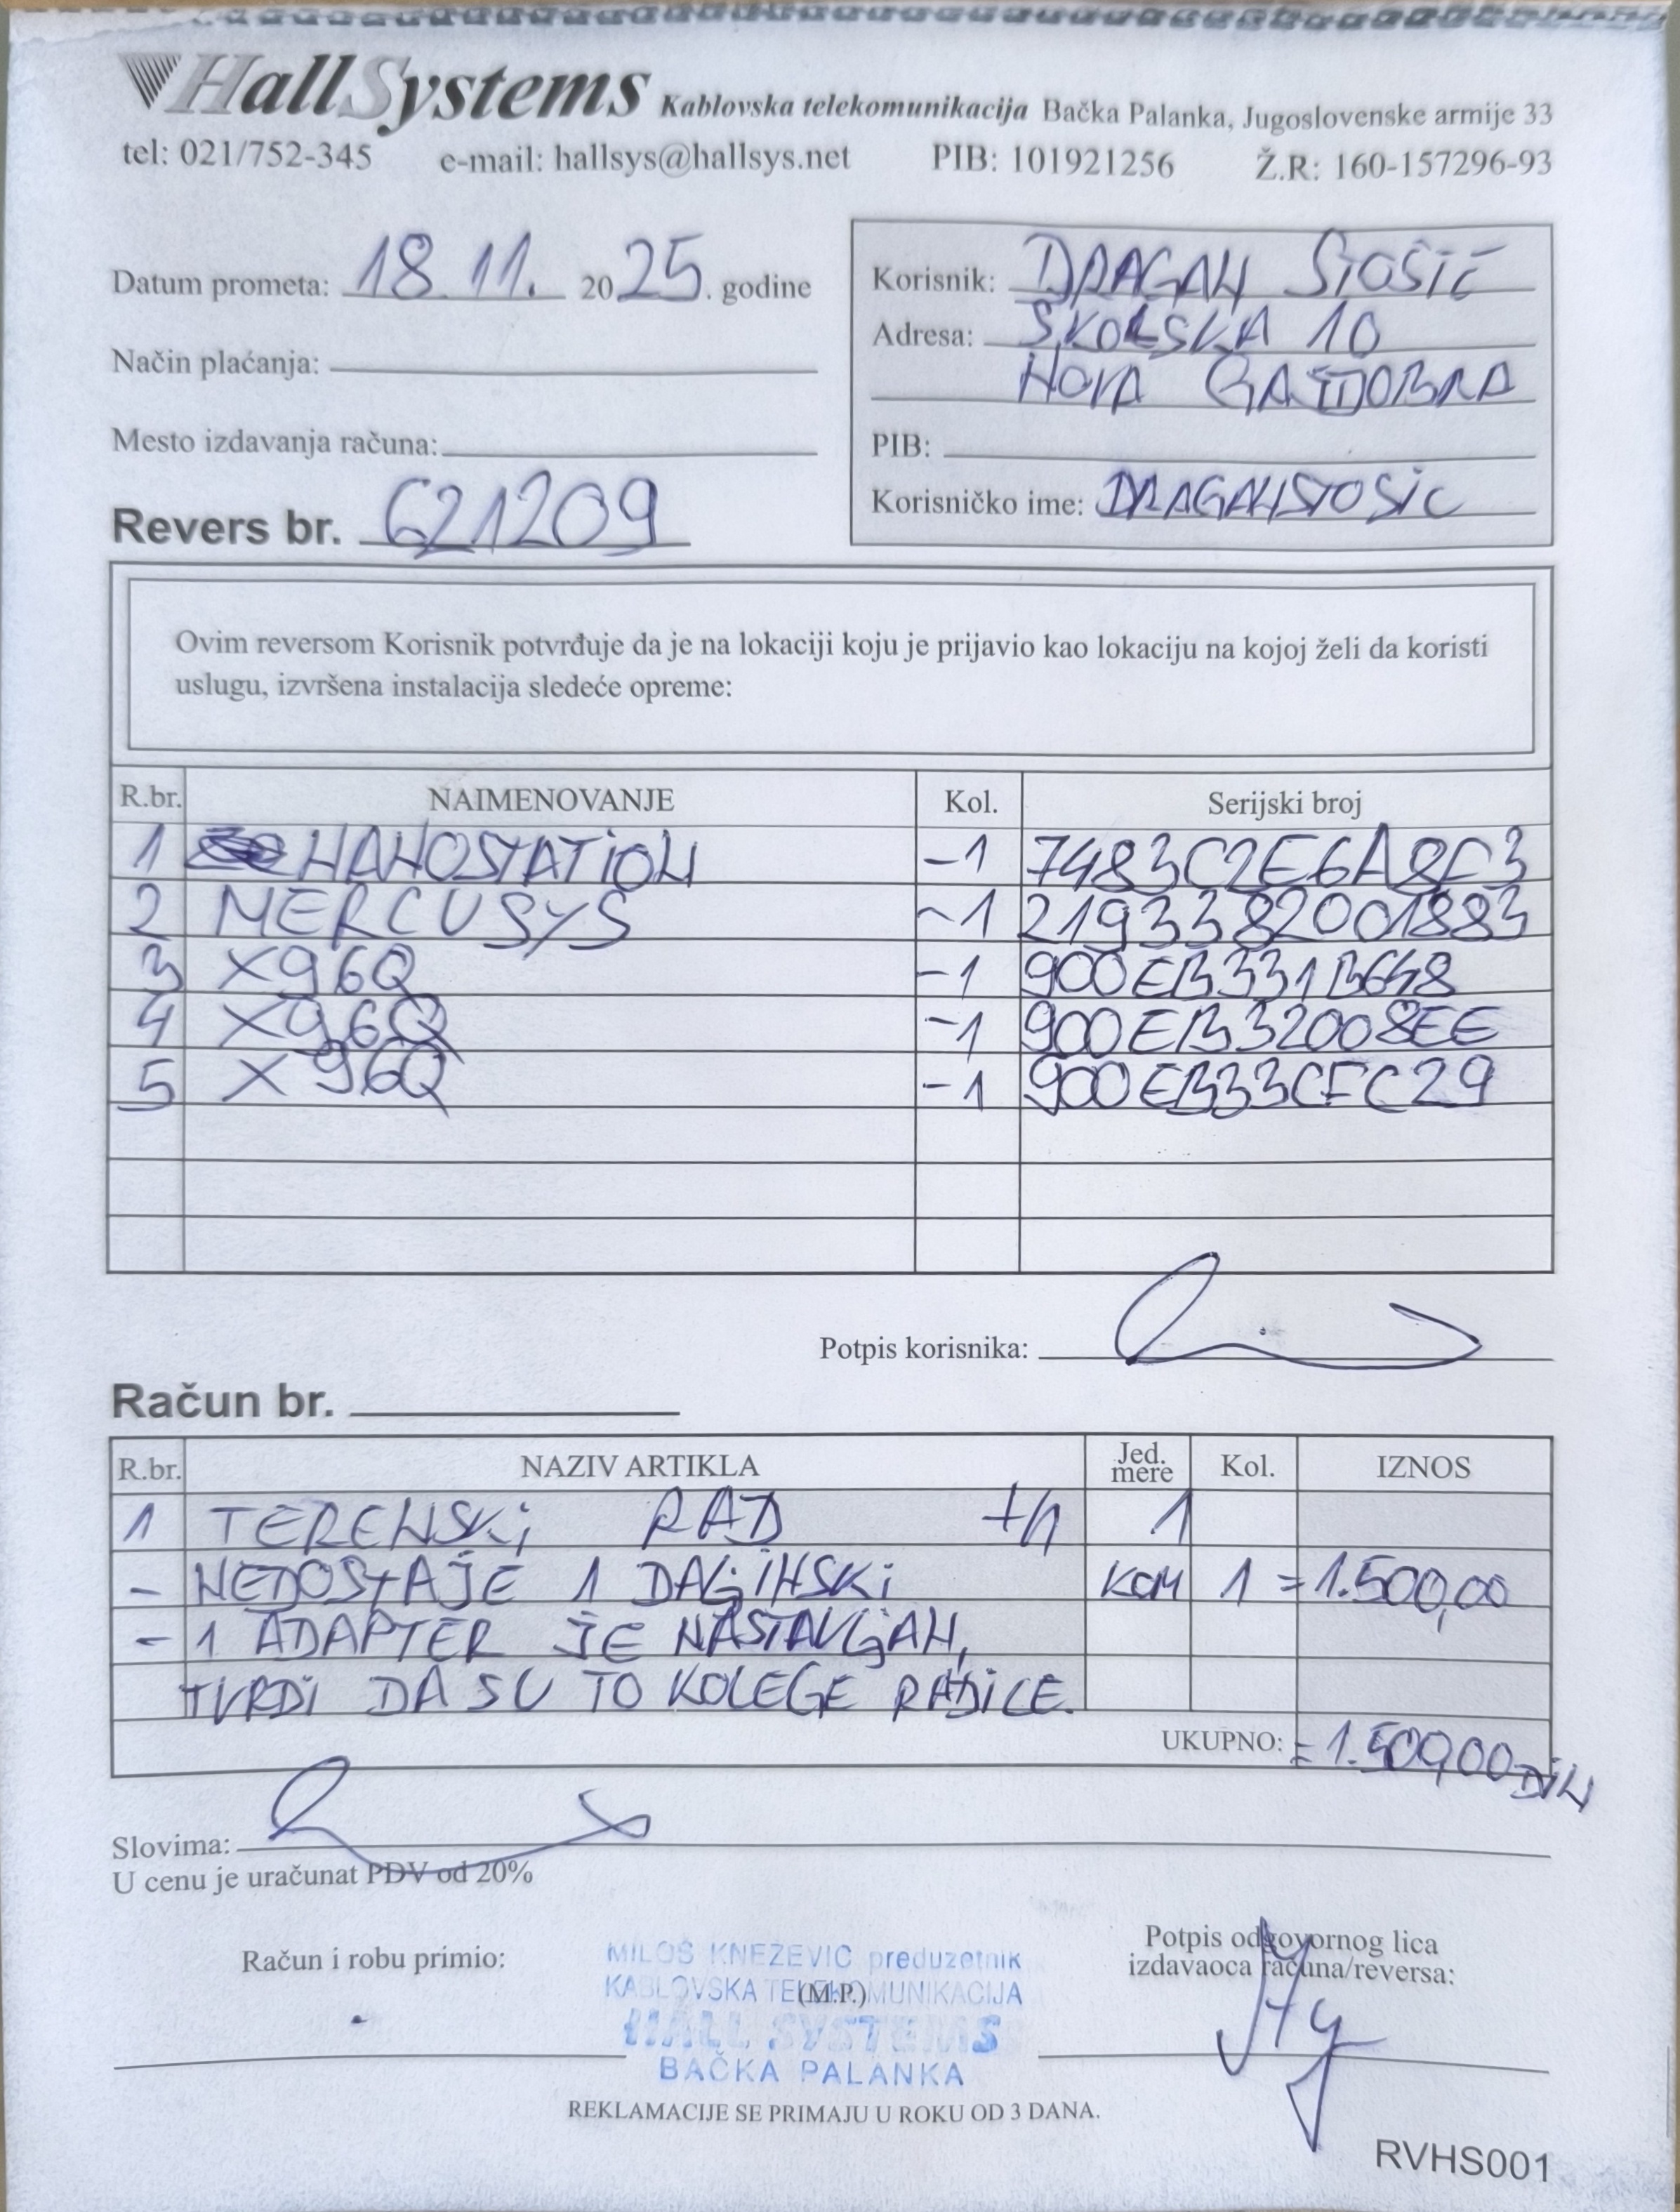 HallSystems Kablovska telekomunikacija Bačka Palanka, Jugoslovenske armije 33
tel: 021/752-345 e-mail: hallsys@hallsys.net PIB: 101921256 Ž.R: 160-157296-93
Datum prometa: 18.11. 2025. godine
Način plaćanja:
Mesto izdavanja računa:
Revers br. 621209
Korisnik: DRAGAN STOŠIĆ
Adresa: ŠKOLSKA 10
NOVA GAJDOBRA
PIB:
Korisničko ime: DRAGANSTOSIC
Ovim reversom Korisnik potvrđuje da je na lokaciji koju je prijavio kao lokaciju na kojoj želi da koristi
uslugu, izvršena instalacija sledeće opreme:
R.br. NAIMENOVANJE Kol. Serijski broj
1 NANOSTATION -1 7483C2E6A8F3
2 MERCUSYS -1 2193382001883
3 X96Q -1 900EB331B648
4 X96Q -1 900EB32008EE
5 X96Q -1 900EB33CFC29
Potpis korisnika:
Račun br.
R.br. NAZIV ARTIKLA Jed. mere Kol. IZNOS
1 TERENSKI RAD 1
- NEDOSTAJE 1 DALJINSKI KOM 1 =1.500,00
- 1 ADAPTER JE NASTAVLJAN,
TVRDI DA SU TO KOLEGE RADILE.
UKUPNO: =1.500,00 DIN
Slovima:
U cenu je uračunat PDV od 20%
Račun i robu primio:
MILOŠ KNEŽEVIĆ preduzetnik
KABLOVSKA TELEKOMUNIKACIJA
(M.P.)
HALL SYSTEMS
BAČKA PALANKA
Potpis odgovornog lica
izdavaoca računa/reversa:
REKLAMACIJE SE PRIMAJU U ROKU OD 3 DANA.
RVHS001